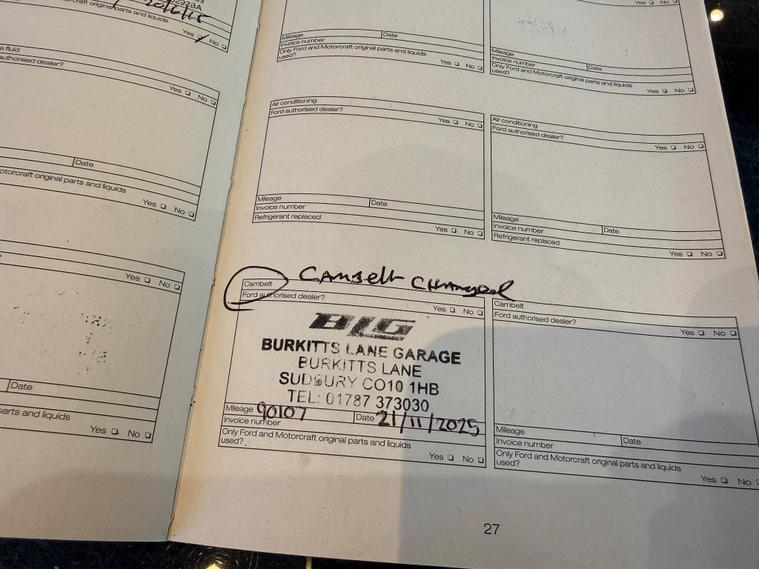 2923A
Yes No
e fluid
authorised dealer?
Yes No
Date
otorcraft original parts and liquids
Yes No
Yes No
Date
parts and liquids
Yes No
Mileage Date
Invoice number
Only Ford and Motorcraft original parts and liquids
used?
Yes No
Yes No
Mileage
Invoice number Date
Only Ford and Motorcraft original parts and liquids
used?
Yes No
Air conditioning
Ford authorised dealer?
Yes No
Mileage Date
Invoice number
Refrigerant replaced
Yes No
Air conditioning
Ford authorised dealer?
Yes No
Mileage
Invoice number Date
Refrigerant replaced
Yes No
Cambelt Changed
Cambelt
Ford authorised dealer?
Yes No
BLG
BURKITTS LANE GARAGE
BURKITTS LANE
SUDBURY CO10 1HB
TEL: 01787 373030
Mileage 90107 Date 21/11/2025
Invoice number
Only Ford and Motorcraft original parts and liquids
used?
Yes No
Cambelt
Ford authorised dealer?
Yes No
Mileage
Invoice number Date
Only Ford and Motorcraft original parts and liquids
used?
Yes No
27